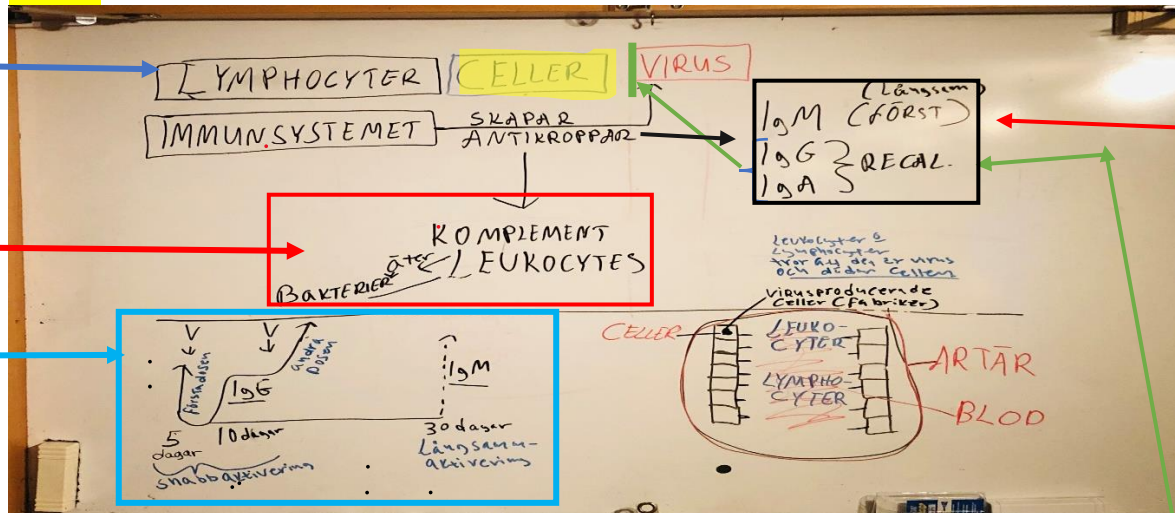 LYMPHOCYTER CELLER VIRUS
IMMUNSYSTEMET SKAPAR
ANTIKROPPAR
(Långsam)
IgM (FÖRST)
IgG } RECAL.
IgA
KOMPLEMENT
LEUKOCYTES
äter
BAKTERIER
Leukocyter &
Lymphocyter
tror att den är virus
och dödar cellen
virusproducerande
celler (Fabriker)
CELLER
LEUKO-
CYTER
LYMPHO-
CYTER
ARTÄR
BLOD
förstadosen
IgG
andra
Dosen
IgM
5
dagar
10 dagar
30 dagar
snabbaktivering
Långsamm-
aktivering